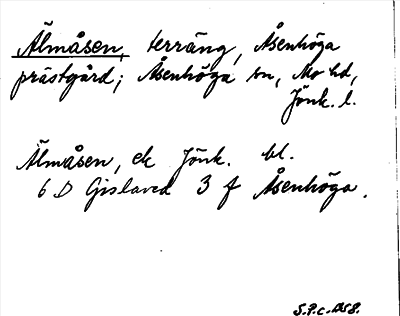 Älmåsen, terräng, Åsenhöga
prästgård; Åsenhöga sn, Mo hd,
Jönk. l.
Älmåsen, ek Jönk. bl.
6 D Gislaved 3 f Åsenhöga.
S.P.c. 1958.